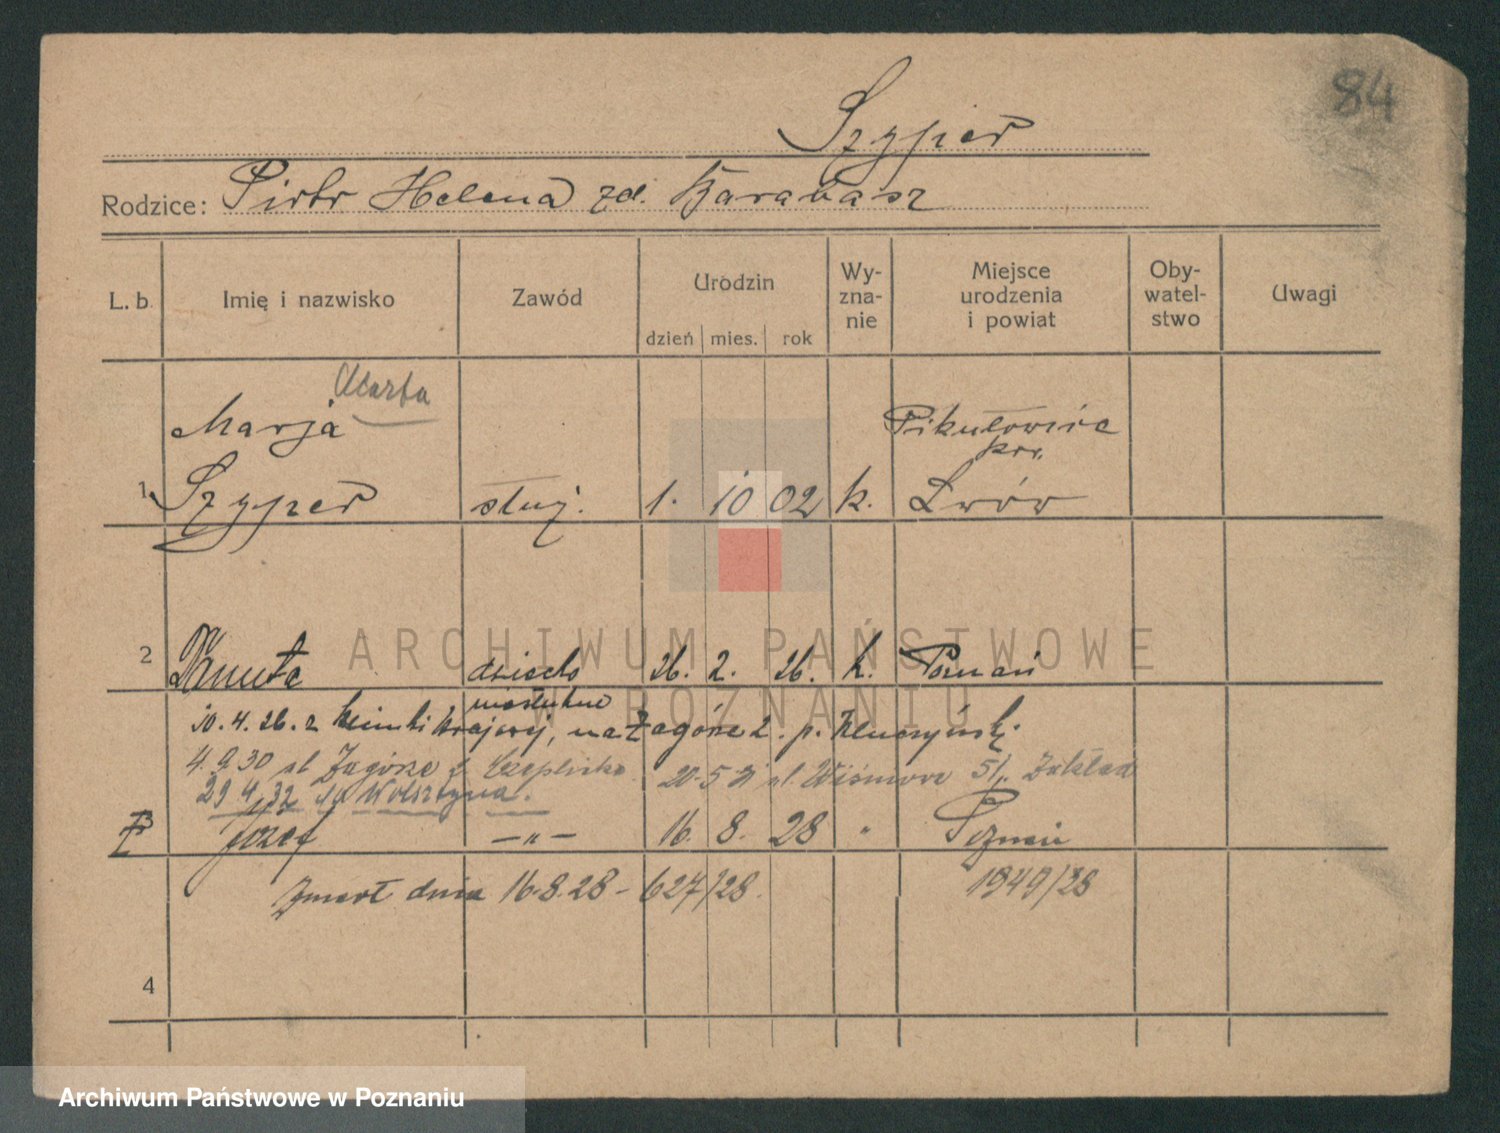 84
Szyper
Rodzice: Piotr Helena zd. Barabasz
L. b. Imię i nazwisko Zawód Urodzin dzień mies. rok Wy-zna-nie Miejsce urodzenia i powiat Oby-watel-stwo Uwagi
Marta
Marja Pikułowice
pow.
1 Szyper służ. 1. 10 02 k. Lwów
2 Danuta dziecko 26. 2. 26. k. Poznań
nieślubne
10. 4. 26. z kliniki krajowej, na Zagórze 2. p.
4.9.30 ul. Zagórze 20-5-31 ul. Wiśniowa 51, Zakład
29 4 32 do Wolsztyna.
3 Józef —„— 16. 8. 28 „ Poznań
Zmarł dnia 16.8.28 - 627/28. 1949/28
4
ARCHIWUM PAŃSTWOWE
W POZNANIU
Archiwum Państwowe w Poznaniu